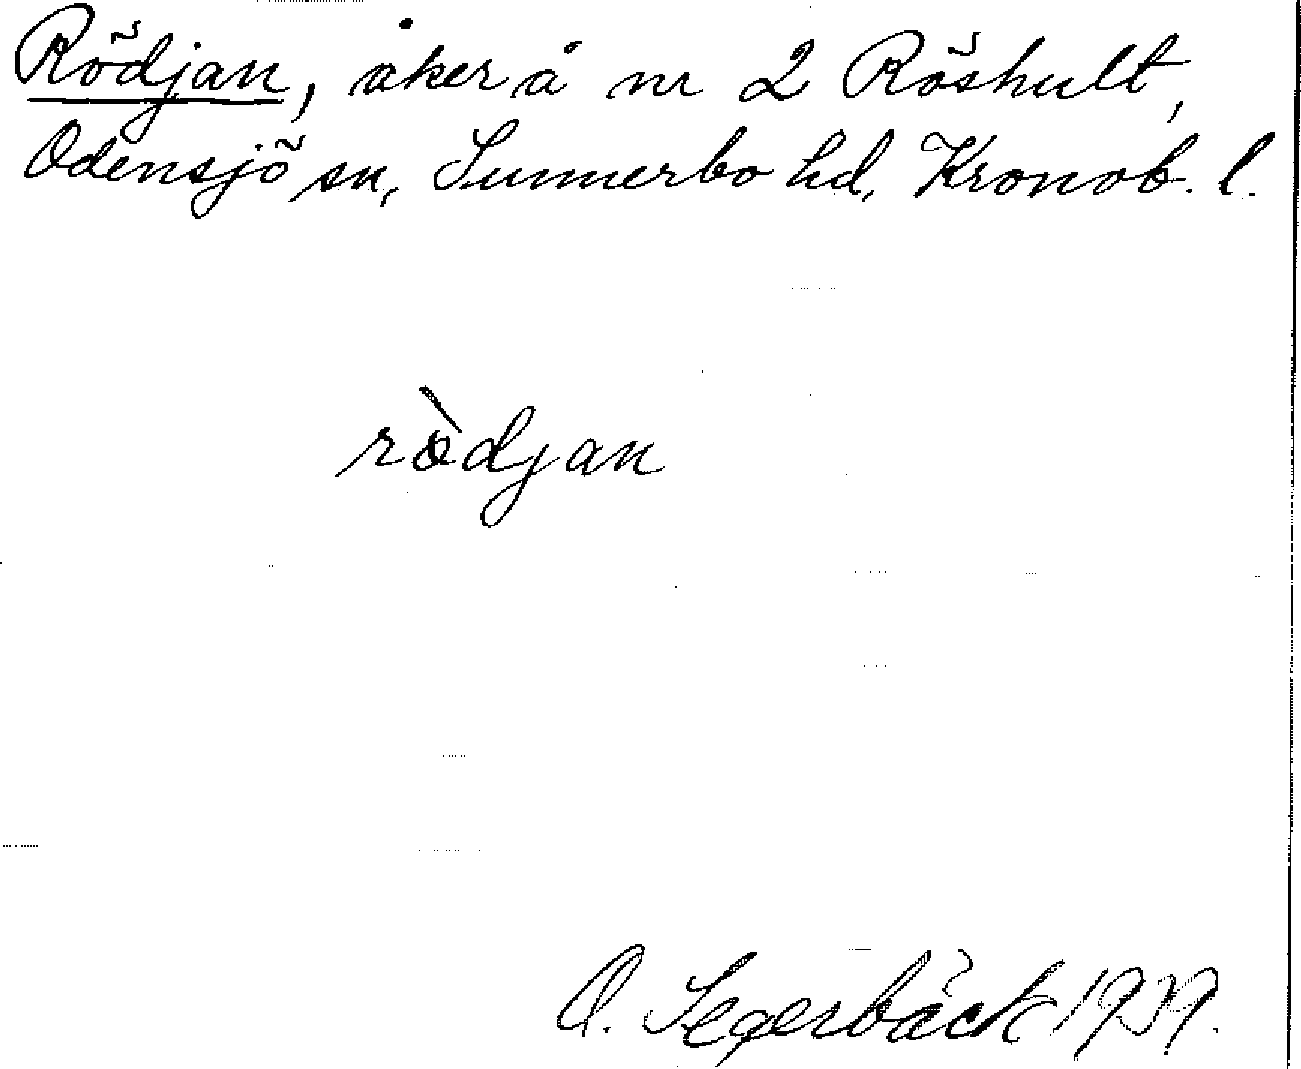 Rödjan, åker å nr 2 Röshult,
Odensjö sn, Sunnerbo hd, Kronob. l.
ròdjan
O. Segerbäck 1939.